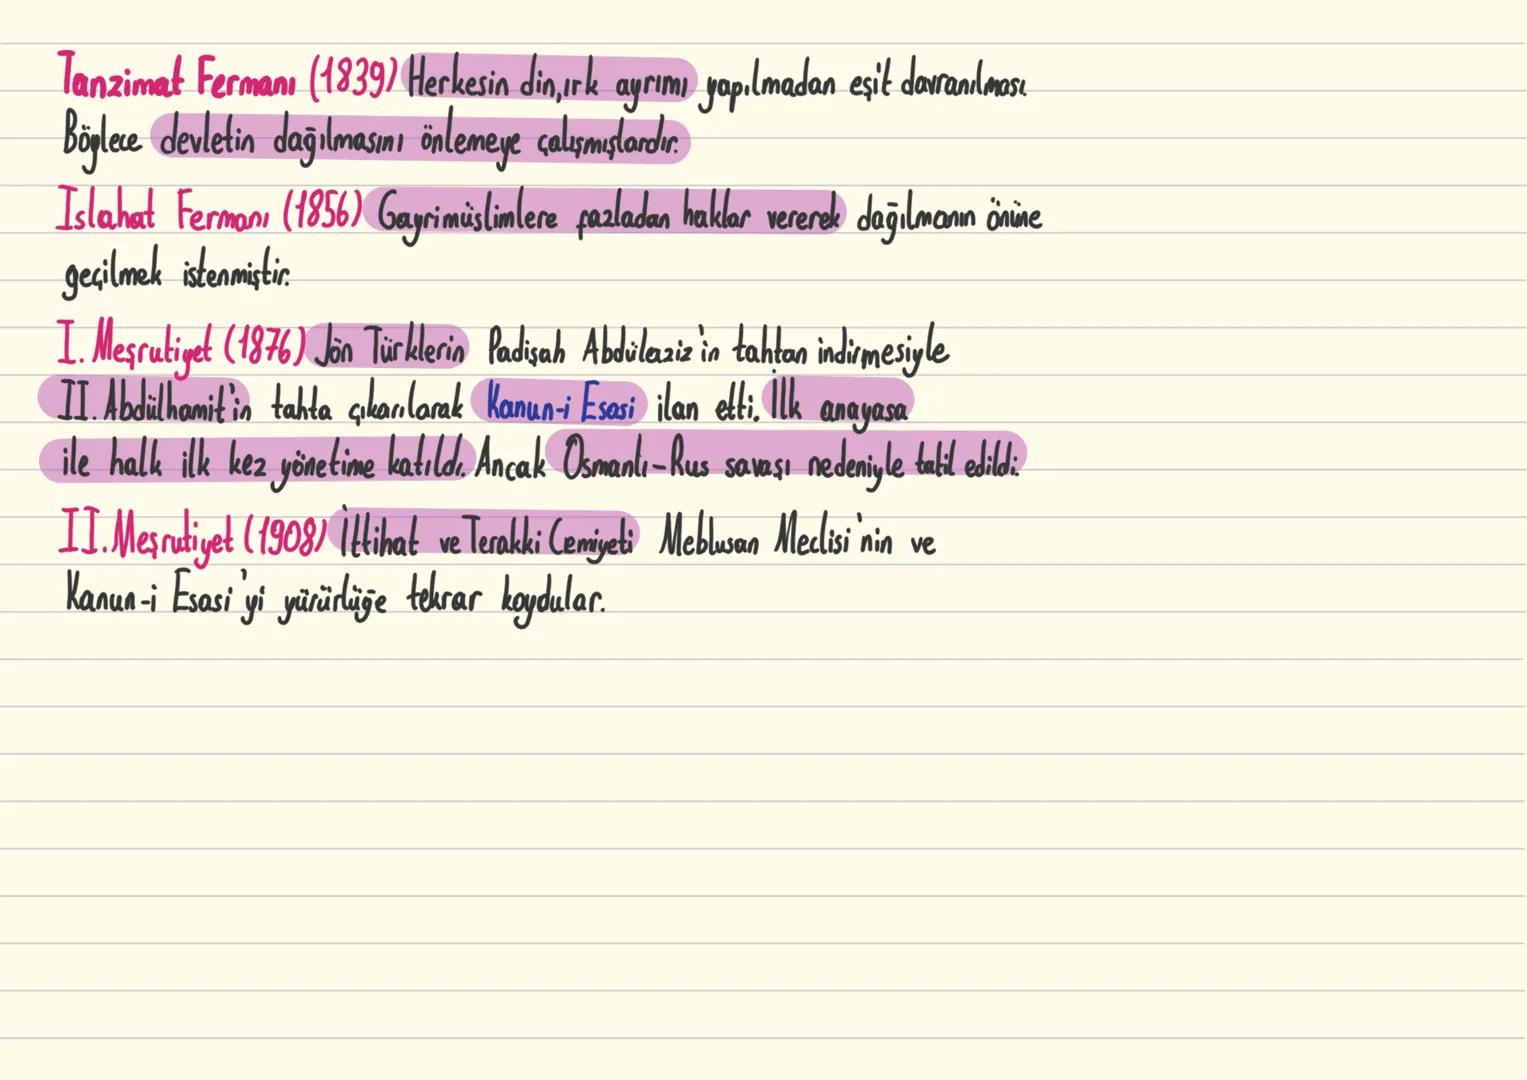 Tanzimat Fermanı (1839) Herkesin din,ırk ayrımı yapılmadan eşit davranılması.
Böylece devletin dağılmasını önlemeye çalışmışlardır.
Islahat Fermanı (1856) Gayrimüslimlere fazladan haklar vererek dağılmanın önüne
geçilmek istenmiştir.
I. Meşrutiyet (1876) Jön Türklerin Padişah Abdülaziz'in tahtan indirmesiyle
II. Abdülhamit'in tahta çıkarılarak Kanun-i Esasi ilan etti. İlk anayasa
ile halk ilk kez yönetime katıldı. Ancak Osmanlı-Rus savaşı nedeniyle tatil edildi.
II. Meşrutiyet (1908) İttihat ve Terakki Cemiyeti Meblusan Meclisi'nin ve
Kanun-i Esasi'yi yürürlüğe tekrar koydular.